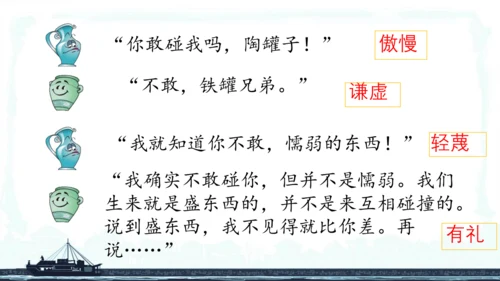 “你敢碰我吗，陶罐子！” 傲慢
“不敢，铁罐兄弟。” 谦虚
“我就知道你不敢，懦弱的东西！” 轻蔑
“我确实不敢碰你，但并不是懦弱。我们
生来就是盛东西的，并不是来互相碰撞的。
说到盛东西，我不见得就比你差。再
说……” 有礼